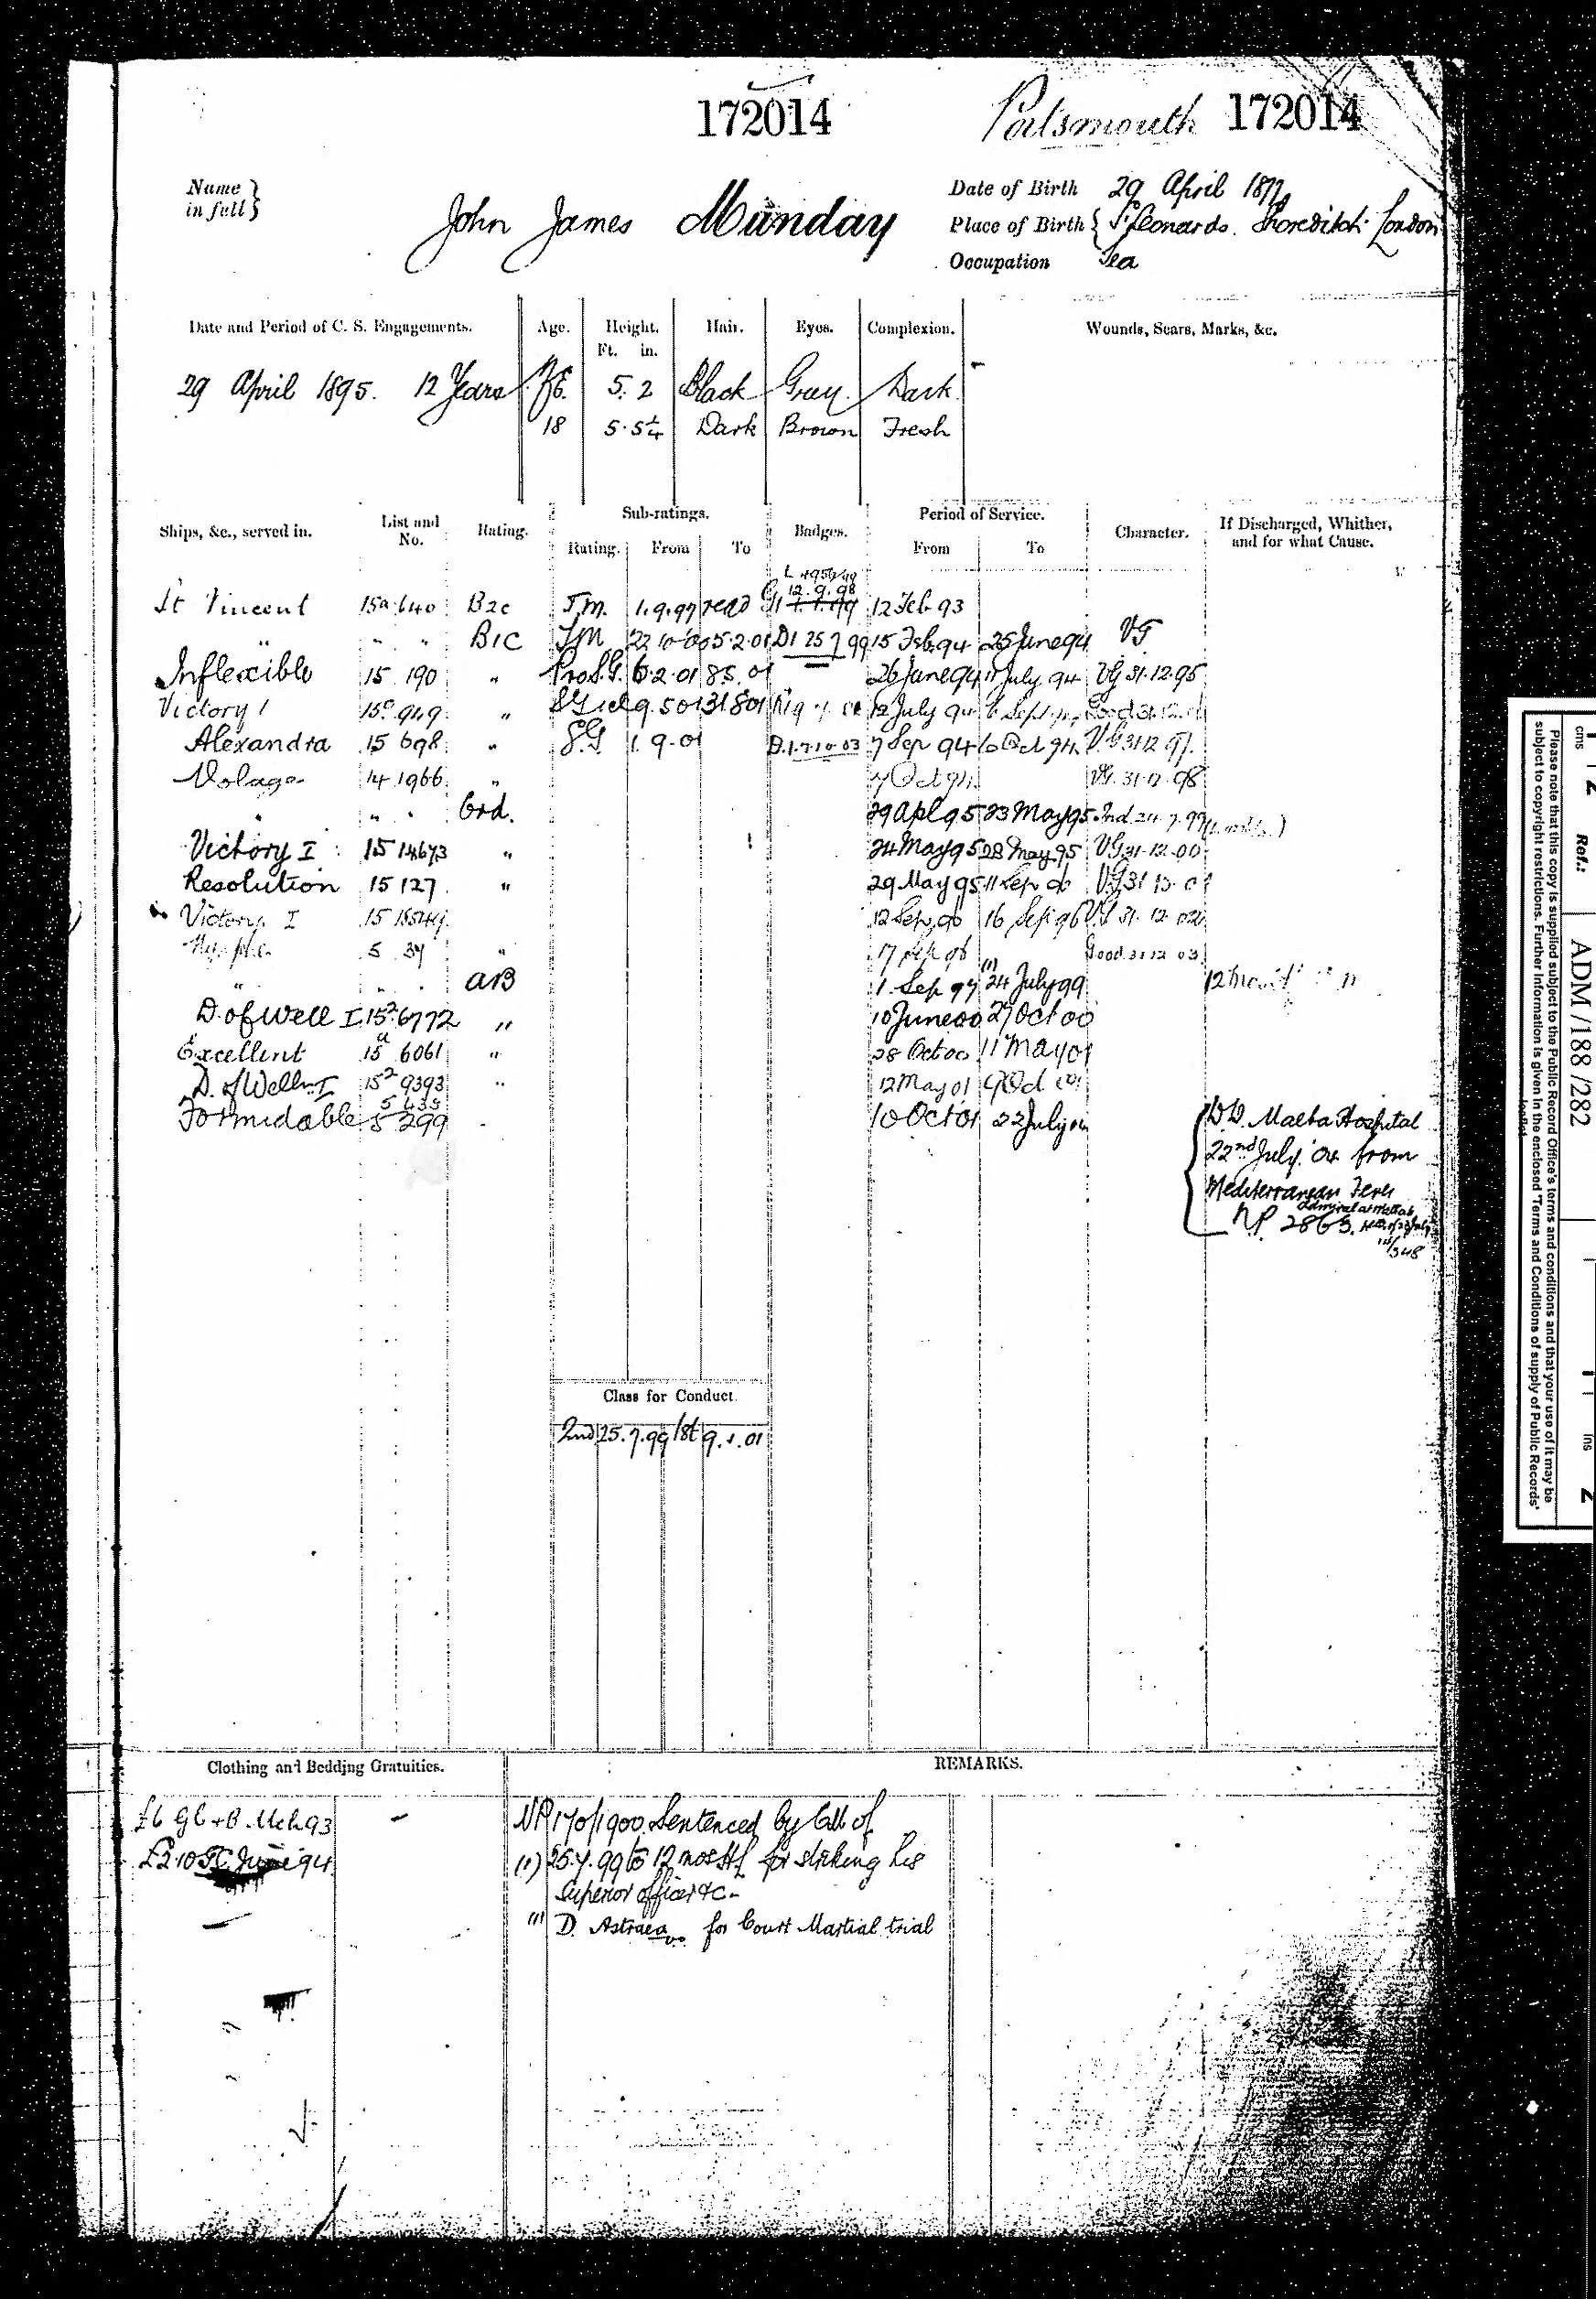 172014
Portsmouth 172014
Name in full } John James Munday
Date of Birth 29 April 1877
Place of Birth { St Leonards. Shoreditch London
Occupation Sea
Date and Period of C. S. Engagements. Age. Height. Ft. in. Hair. Eyes. Complexion. Wounds, Scars, Marks, &c.
29 April 1895. 12 Years 5. 2 Black Grey Dark
18 5. 5¼ Dark Brown Fresh
Ships, &c., served in. List and No. Rating. Sub-ratings. Badges. Period of Service. Character. If Discharged, Whither, and for what Cause.
Rating. From To From To
12.9.98
St Vincent 15a 640 B2c T.M. 1.9.97 12 Feb 93
" " " B1C TM 22 10 00 5.2.01 D1 25 7 99 15 Feb. 94 25 June 94 VG
Inflexible 15 190 " Pro S.G. 6.2.01 8.5.01 26 June 94 11 July 94 VG 31.12.95
Victory I 15c 949 " 9.5 01 31 8 01 12 July 94 6 Sept
Alexandra 15 698 " S.G 1.9.01 D.1.7.10.03 7 Sep 94 6 Oct 94 V.G 31 12 97
Volage 14 1966 " 7 Oct 94 VG. 31.12.98
" " " Ord. 29 Apl 95 23 May 95 Ind. 24.7.99
Victory I 15 14673 " 24 May 95 28 May 95 VG 31.12.00
Resolution 15 127 " 29 May 95 11 Sep 96 V.G 31
Victory I 15 12 Sep 96 16 Sep 96 VG 31.12.02
5 39 " 17 Sep 96 Good 31 12 03
" " " AB 1 Sep 97 (1) 24 July 99 12
D. of Well I 15² 6772 " 10 June 00 27 Oct 00
Excellent 15a 6061 " 28 Oct 00 11 May 01
D. of Well. I 15² 9393 " 12 May 01 9 Oct 01
5 435
Formidable 5 299 10 Oct 01 22 July 04 D.D. Malta Hospital
22nd July. 04 from
Mediterranean Fever
Admiral at Malta's
N.P. 2863.
/348
Class for Conduct.
2nd 25.7.99 1st 9.1.01
Clothing and Bedding Gratuities. REMARKS.
£6 Gb + B. Mch 93
£2.10 June 94
NP 170/1900. Sentenced by C.M. of
(1) 25.7.99 to 12 mos HL for striking his
Superior officer &c.
(1) D. Astraea for Court Martial trial
cms 1 2
Ref.: ADM / 188 / 282
ins 1 2
Please note that this copy is supplied subject to the Public Record Office's terms and conditions and that your use of it may be
subject to copyright restrictions. Further information is given in the enclosed 'Terms and Conditions of supply of Public Records'
leaflet